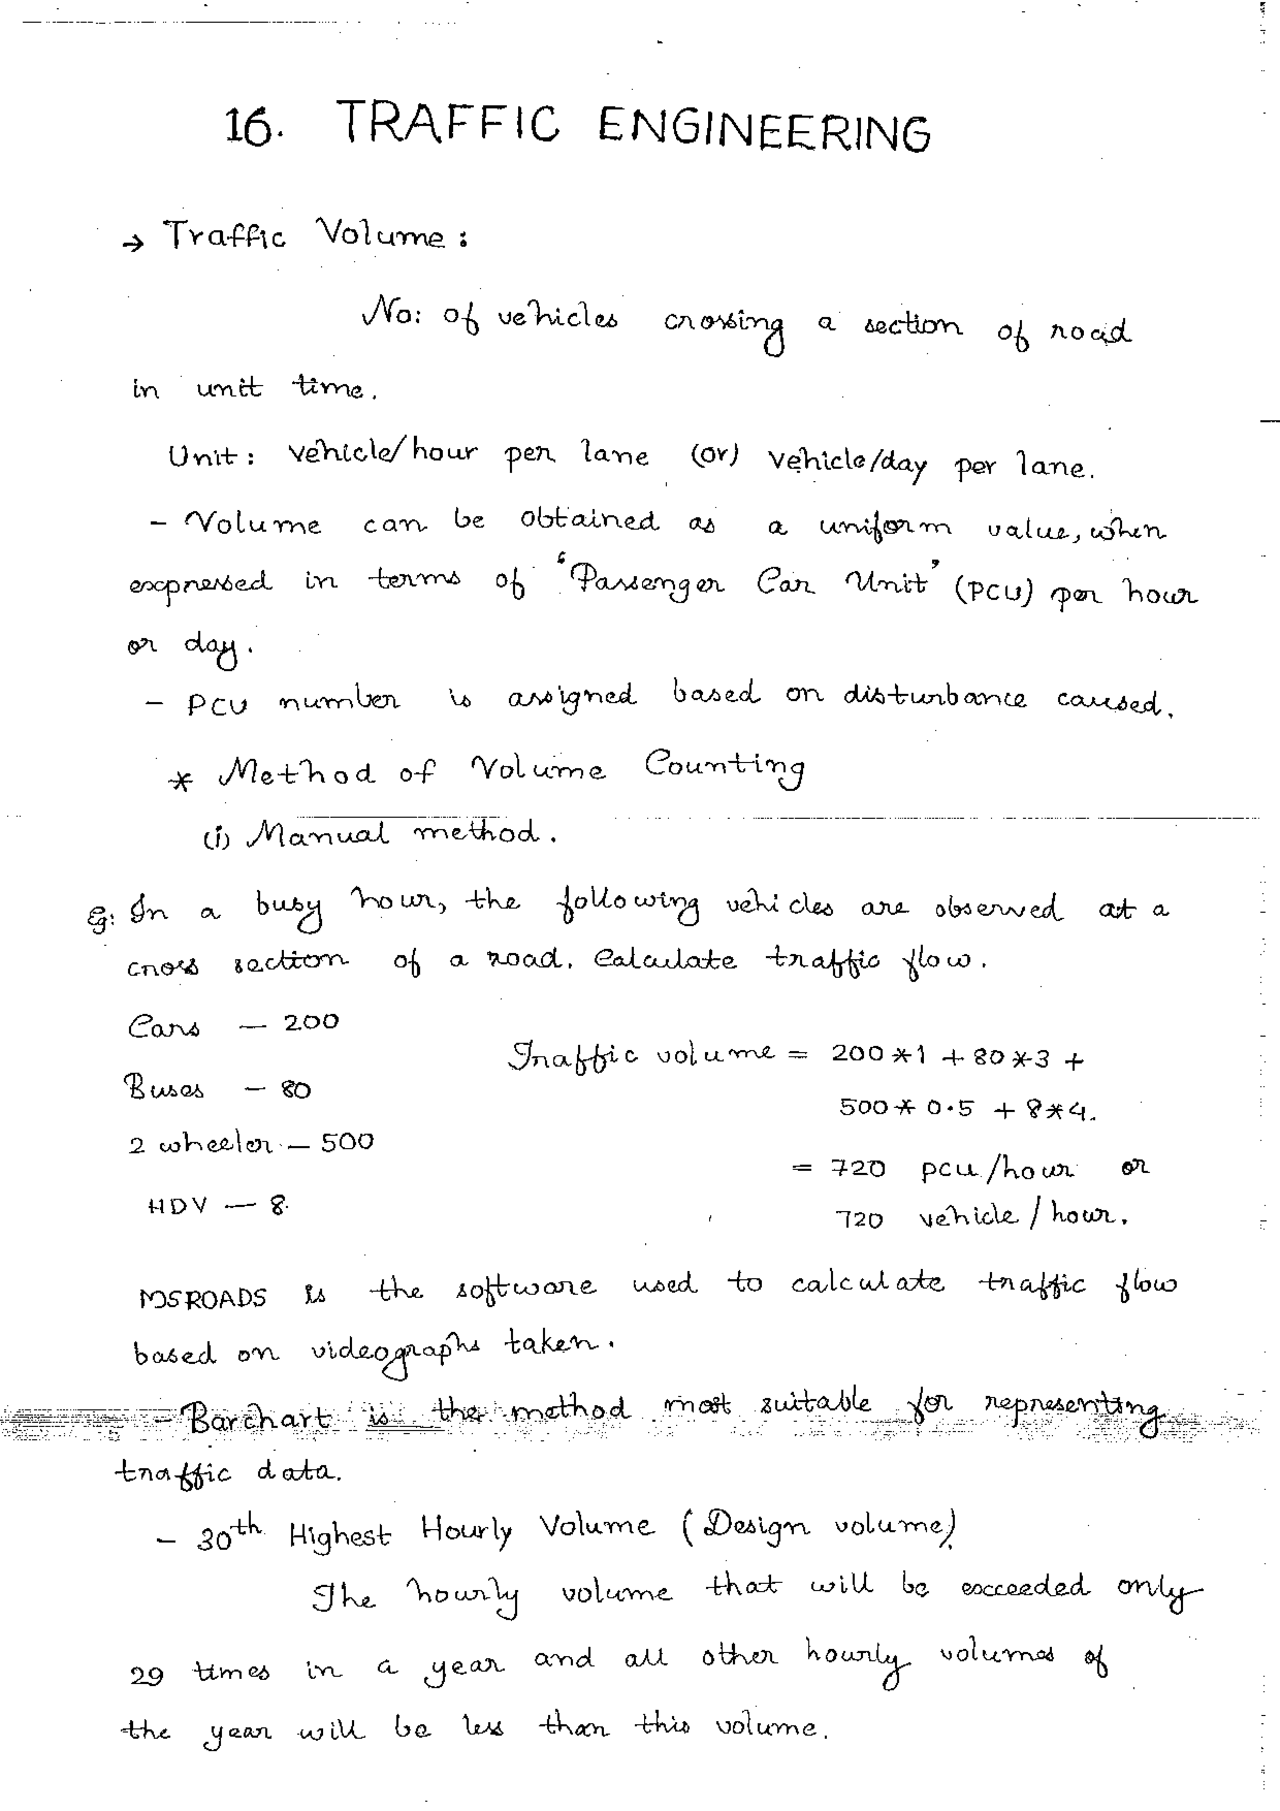 16. TRAFFIC ENGINEERING
→ Traffic Volume :
No: of vehicles crossing a section of road
in unit time.
Unit : vehicle/hour per lane (or) vehicle/day per lane.
- Volume can be obtained as a uniform value, when
expressed in terms of 'Passenger Car Unit' (PCU) per hour
or day.
- PCU number is assigned based on disturbance caused.
* Method of Volume Counting
(i) Manual method.
Eg: In a busy hour, the following vehicles are observed at a
cross section of a road. Calculate traffic flow.
Cars — 200
Buses — 80
2 wheeler — 500
HDV — 8
Traffic volume = 200 * 1 + 80 * 3 +
500 * 0.5 + 8 * 4.
= 720 pcu/hour or
720 vehicle / hour.
MSROADS is the software used to calculate traffic flow
based on videographs taken.
- Barchart is the method most suitable for representing
traffic data.
- 30th Highest Hourly Volume (Design volume)
The hourly volume that will be exceeded only
29 times in a year and all other hourly volumes of
the year will be less than this volume.